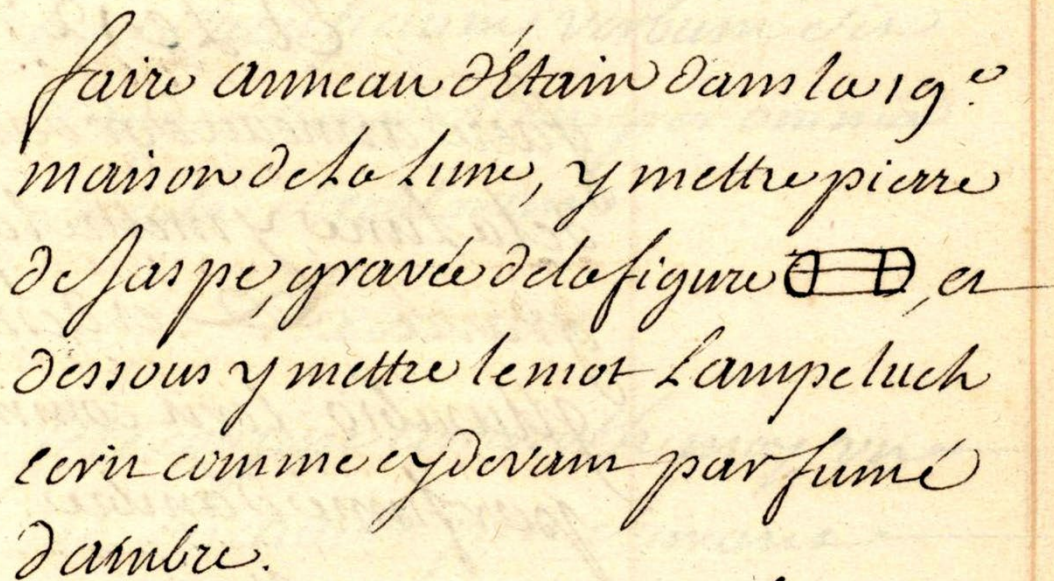 faire anneau d'Etain dans la 19.e
maison de La Lune, y mettre pierre
de Jaspe, gravée de la figure , et
dessous y mettre le mot Lampeluch
ecrit comme cy devant parfumé
d'ambre.